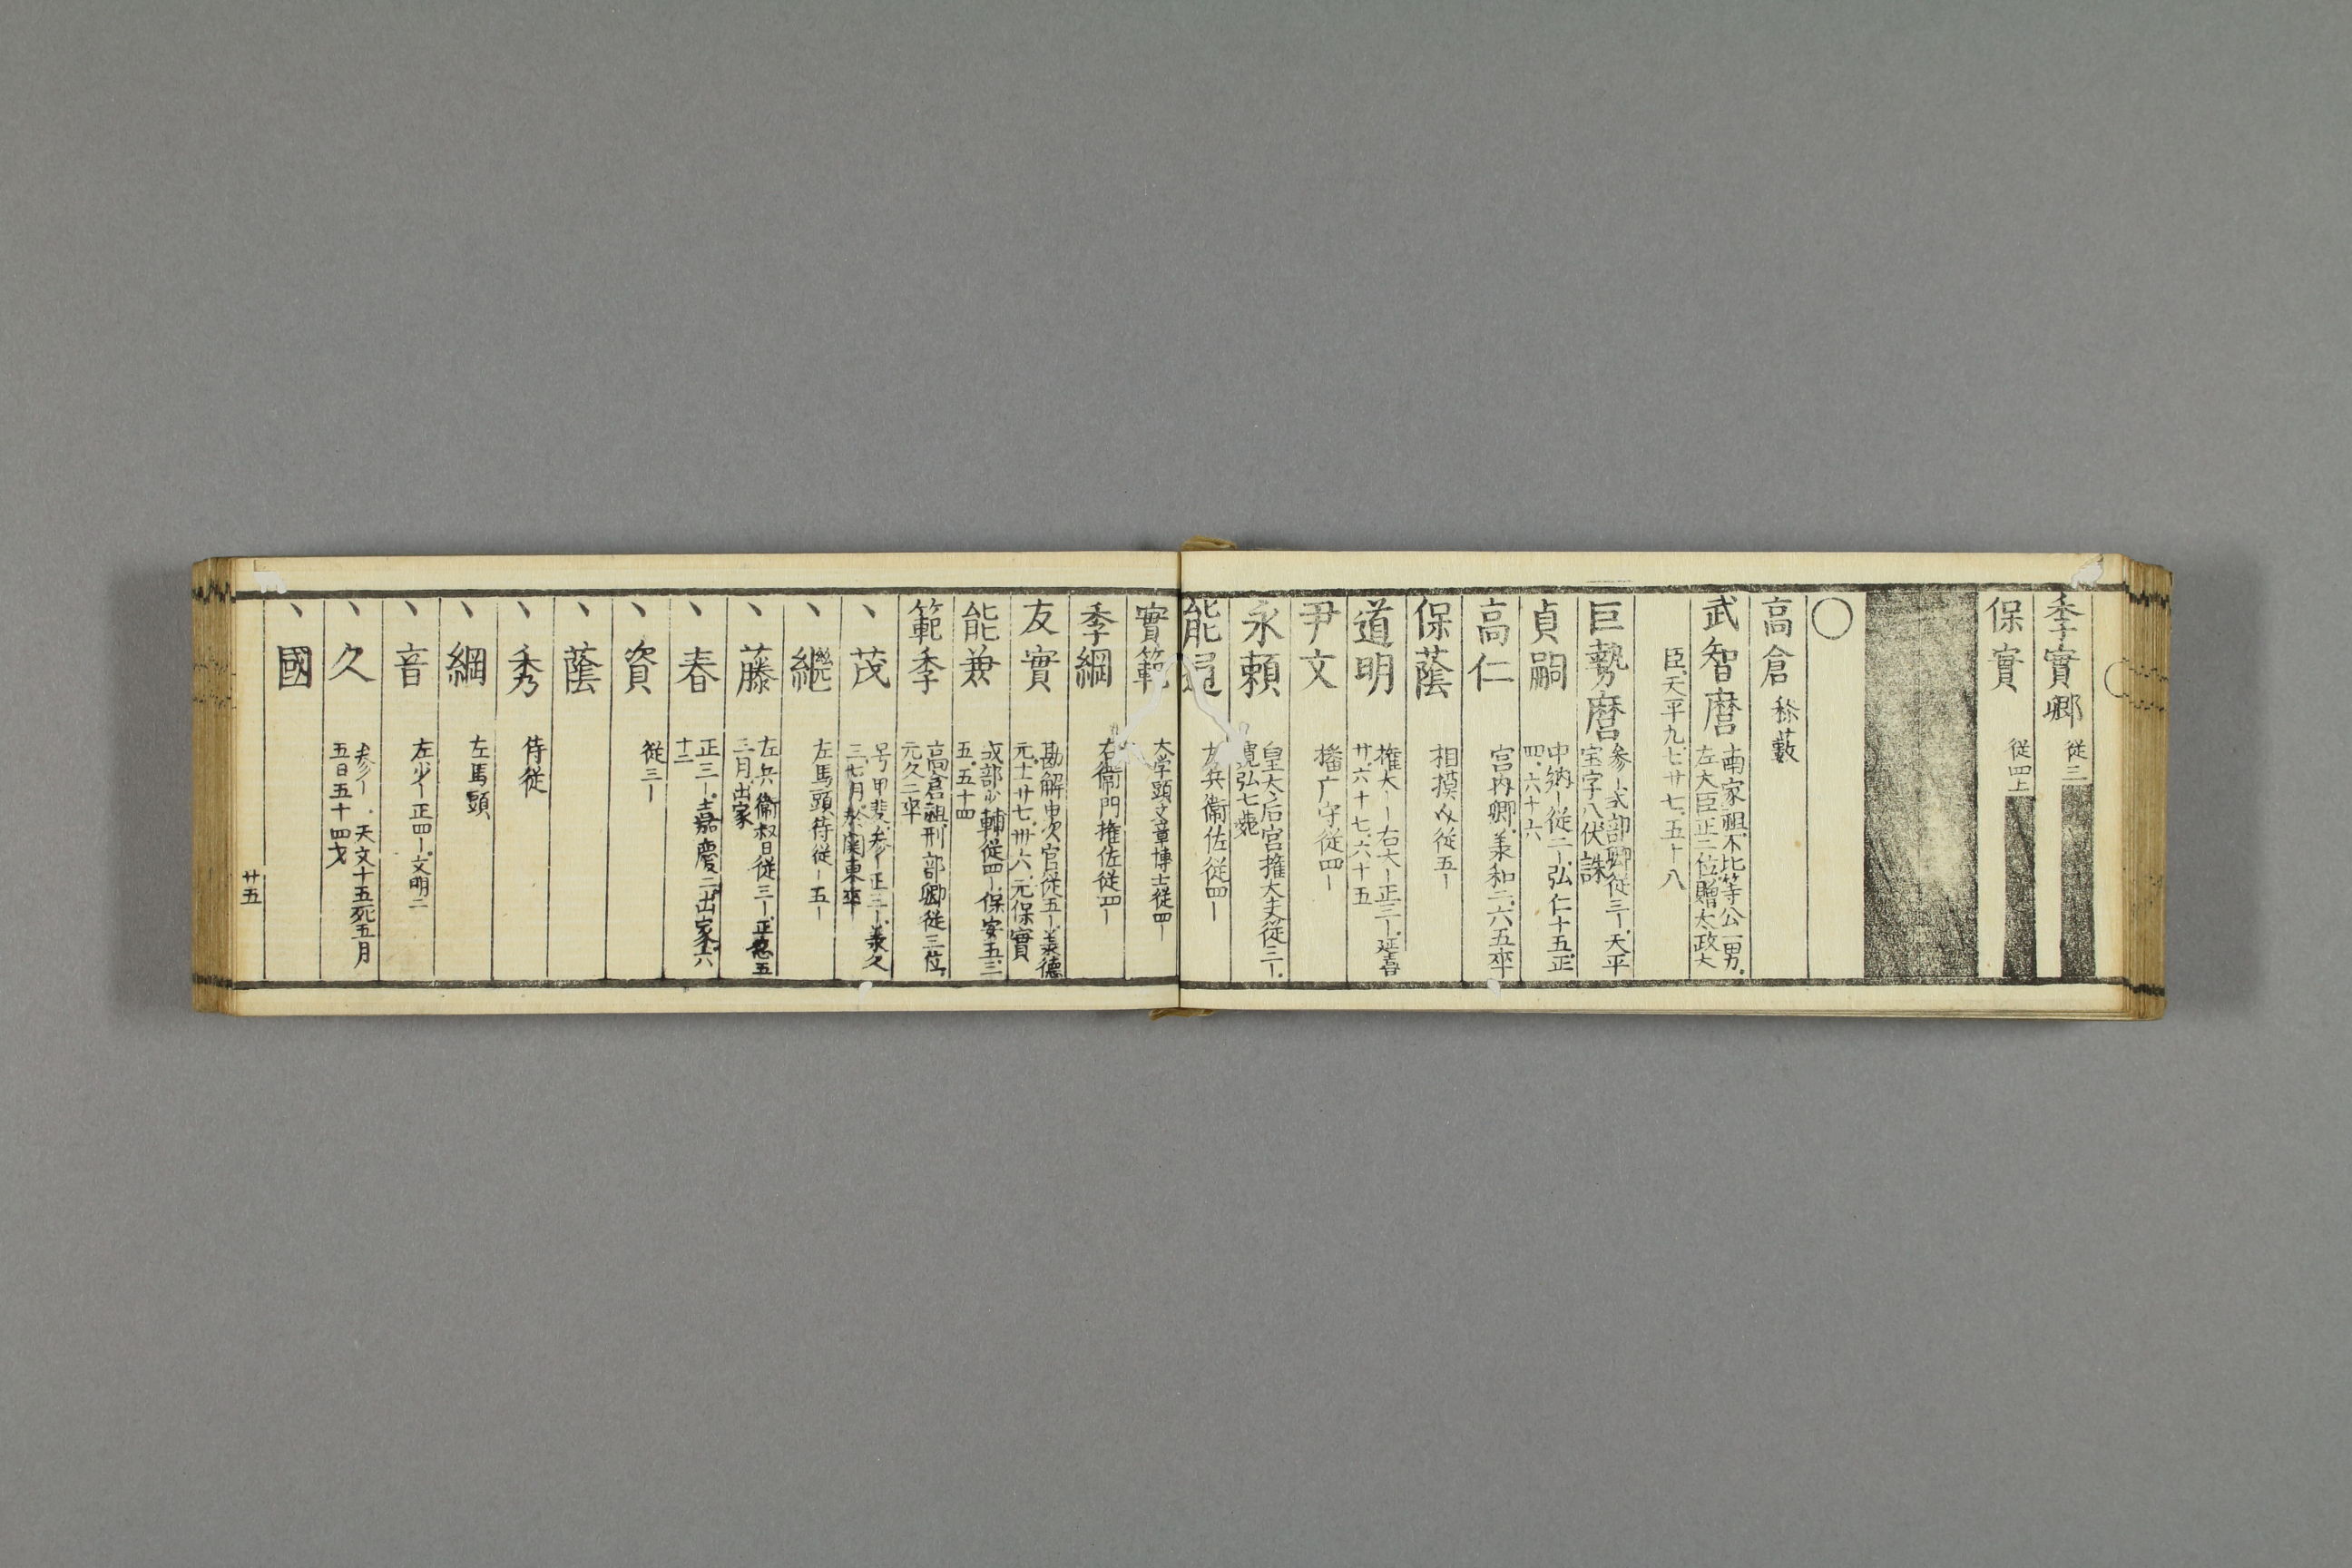 季實卿 従三
保實 従四上
〇
高倉 称藪
武智麿 南家祖不比等公一男。
左大臣正二位贈太政大
臣、天平九七、廿七、五十八
巨勢麿 参ー式部卿従三ー、天平
宝字八伏誅
貞嗣 中納ー従二ー、弘仁十五正
四、六十六
高仁 宮内卿、羕和二、六五卒
保蔭 相摸乄従五ー
道明 権大ー右大ー正三ー、延喜
廿、六十七、六十五
尹文 播广守従四ー
永頼 皇太后宮権大夫従二ー、
寛弘七薨
能通 左兵衞佐従四ー
實範 大学頭文章博士従四ー
季綱 右衞門権佐従四ー
友實 勘解由次官従五ー、羕德
元、十二廿七、卅六、元保實
能兼 式部少輔従四ー、保安五、三
五、五十四
範季 高倉祖刑部卿従三位、
元久二卒
、茂 号甲斐、参ー正三ー、羕久
三、七月、於関東卒
、継 左馬頭侍従ー五ー
、藤 左兵衞督従三ー、正應五
三月、出家
、春 正三ー、嘉慶二、出家、六
十三
、資 従三ー
、蔭
、秀 侍従
、綱 左馬頭
、音 左少ー正四ー、文明二
、久 参ー、天文十五死五月
五日五十四才
、國
廿五